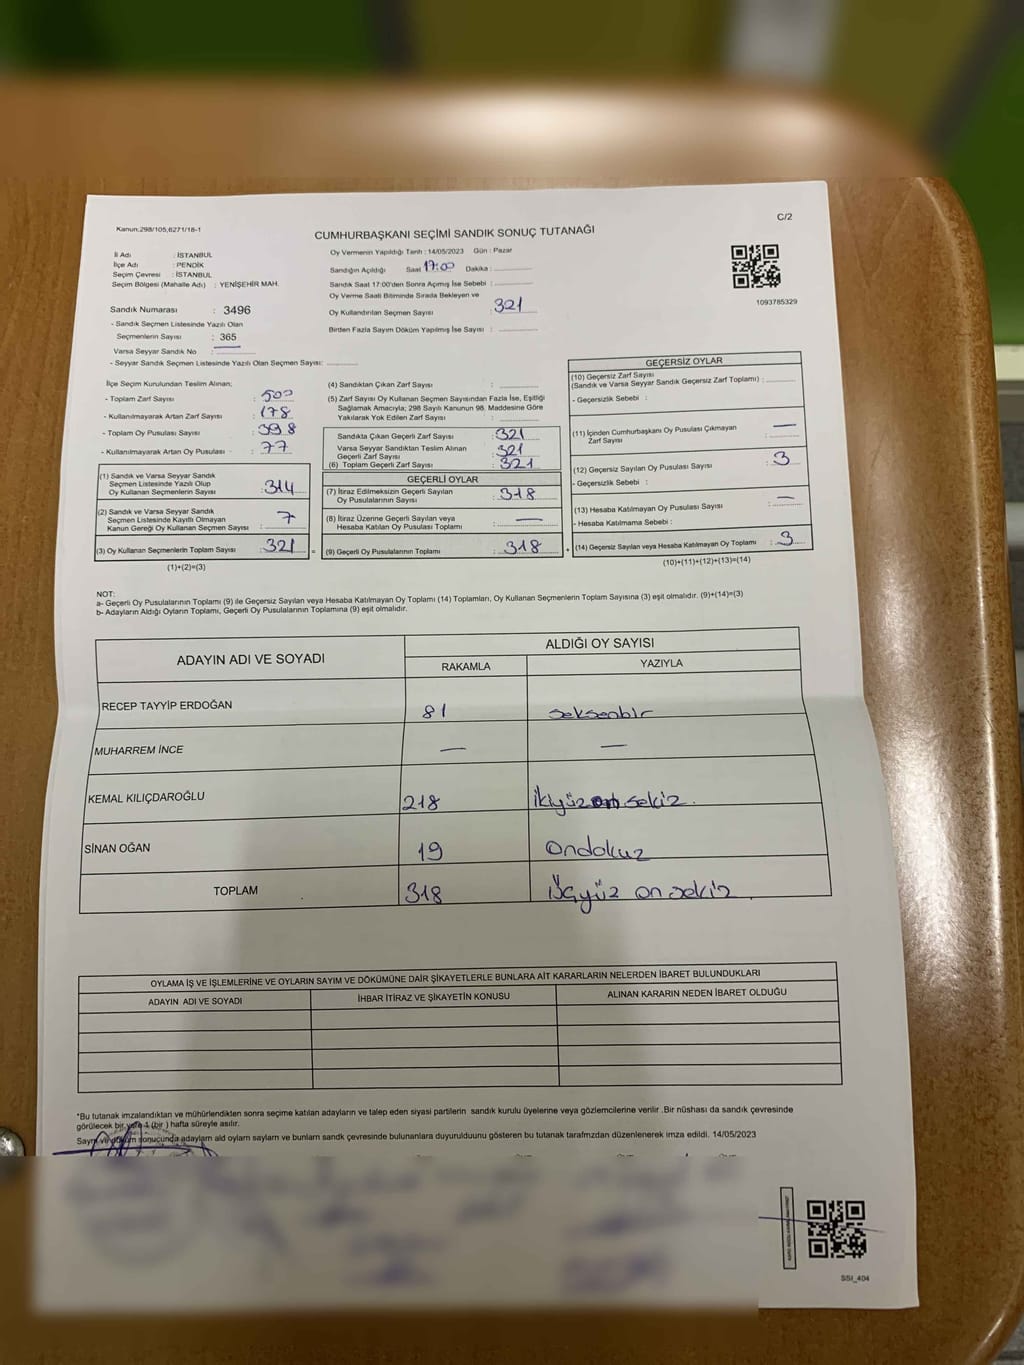 Kanun:298/105,6271/18-1
C/2
CUMHURBAŞKANI SEÇİMİ SANDIK SONUÇ TUTANAĞI
İl Adı : İSTANBUL
İlçe Adı : PENDİK
Seçim Çevresi : İSTANBUL
Seçim Bölgesi (Mahalle Adı) : YENİŞEHİR MAH.
Sandık Numarası : 3496
- Sandık Seçmen Listesinde Yazılı Olan
Seçmenlerin Sayısı : 365
Varsa Seyyar Sandık No : —
- Seyyar Sandık Seçmen Listesinde Yazılı Olan Seçmen Sayısı:
Oy Vermenin Yapıldığı Tarih : 14/05/2023 Gün : Pazar
Sandığın Açıldığı Saat 17:00 Dakika :
Sandık Saat 17:00'den Sonra Açmış İse Sebebi :
Oy Verme Saati Bitiminde Sırada Bekleyen ve
Oy Kullandırılan Seçmen Sayısı : 321
Birden Fazla Sayım Döküm Yapılmış İse Sayısı :
1093785329
İlçe Seçim Kurulundan Teslim Alınan;
- Toplam Zarf Sayısı : 500
- Kullanılmayarak Artan Zarf Sayısı : 178
- Toplam Oy Pusulası Sayısı : 398
- Kullanılmayarak Artan Oy Pusulası : 77
(1) Sandık ve Varsa Seyyar Sandık
Seçmen Listesinde Yazılı Olup
Oy Kullanan Seçmenlerin Sayısı : 314
(2) Sandık ve Varsa Seyyar Sandık
Seçmen Listesinde Kayıtlı Olmayan
Kanun Gereği Oy Kullanan Seçmen Sayısı : 7
(3) Oy Kullanan Seçmenlerin Toplam Sayısı : 321
(1)+(2)=(3)
(4) Sandıktan Çıkan Zarf Sayısı :
(5) Zarf Sayısı Oy Kullanan Seçmen Sayısından Fazla İse, Eşitliği
Sağlamak Amacıyla; 298 Sayılı Kanunun 98. Maddesine Göre
Yakılarak Yok Edilen Zarf Sayısı :
Sandıkta Çıkan Geçerli Zarf Sayısı : 321
Varsa Seyyar Sandıktan Teslim Alınan
Geçerli Zarf Sayısı : 321
(6) Toplam Geçerli Zarf Sayısı : 321
GEÇERLİ OYLAR
(7) İtiraz Edilmeksizin Geçerli Sayılan
Oy Pusulalarının Sayısı : 318
(8) İtiraz Üzerine Geçerli Sayılan veya
Hesaba Katılan Oy Pusulası Toplamı : —
= (9) Geçerli Oy Pusulalarının Toplamı : 318
GEÇERSİZ OYLAR
(10) Geçersiz Zarf Sayısı
(Sandık ve Varsa Seyyar Sandık Geçersiz Zarf Toplamı) :
- Geçersizlik Sebebi :
(11) İçinden Cumhurbaşkanı Oy Pusulası Çıkmayan
Zarf Sayısı : —
(12) Geçersiz Sayılan Oy Pusulası Sayısı : 3
- Geçersizlik Sebebi :
(13) Hesaba Katılmayan Oy Pusulası Sayısı : —
- Hesaba Katılmama Sebebi :
+ (14) Geçersiz Sayılan veya Hesaba Katılmayan Oy Toplamı : 3
(10)+(11)+(12)+(13)=(14)
NOT:
a- Geçerli Oy Pusulalarının Toplamı (9) ile Geçersiz Sayılan veya Hesaba Katılmayan Oy Toplamı (14) Toplamları, Oy Kullanan Seçmenlerin Toplam Sayısına (3) eşit olmalıdır. (9)+(14)=(3)
b- Adayların Aldığı Oyların Toplamı, Geçerli Oy Pusulalarının Toplamına (9) eşit olmalıdır.
ADAYIN ADI VE SOYADI
ALDIĞI OY SAYISI
RAKAMLA YAZIYLA
RECEP TAYYİP ERDOĞAN 81 seksenbir
MUHARREM İNCE — —
KEMAL KILIÇDAROĞLU 218 ikiyüz on sekiz.
SİNAN OĞAN 19 Ondokuz
TOPLAM 318 Üçyüz on sekiz.
OYLAMA İŞ VE İŞLEMLERİNE VE OYLARIN SAYIM VE DÖKÜMÜNE DAİR ŞİKAYETLERLE BUNLARA AİT KARARLARIN NELERDEN İBARET BULUNDUKLARI
ADAYIN ADI VE SOYADI İHBAR İTİRAZ VE ŞİKAYETİN KONUSU ALINAN KARARIN NEDEN İBARET OLDUĞU
*Bu tutanak imzalandıktan ve mühürlendikten sonra seçime katılan adayların ve talep eden siyasi partilerin sandık kurulu üyelerine veya gözlemcilerine verilir .Bir nüshası da sandık çevresinde
görülecek bir yere 1 (bir ) hafta süreyle asılır.
Sayım ve döküm sonuçunda adaylarn ald oylarn saylarn ve bunlarn sandk çevresinde bulunanlara duyurulduunu gösteren bu tutanak tarafmzdan düzenlenerek imza edildi. 14/05/2023
SSI_404